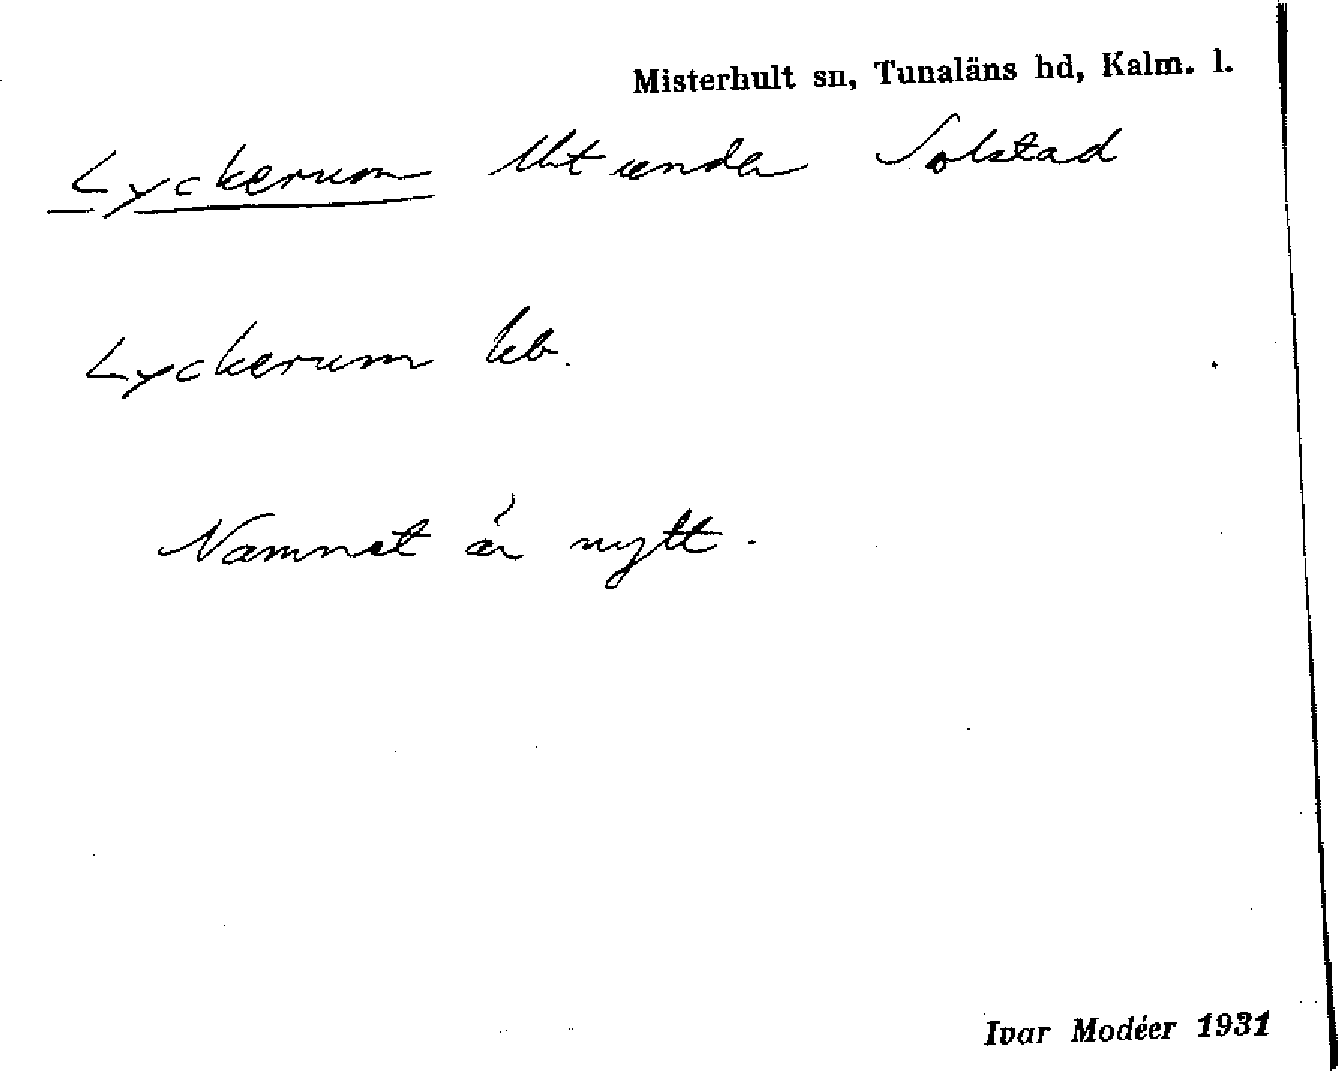 Misterhult sn, Tunaläns hd, Kalm. l.
Lyckerum lht under Solstad
Lyckerum kb.
Namnet är nytt.
Ivar Modéer 1931